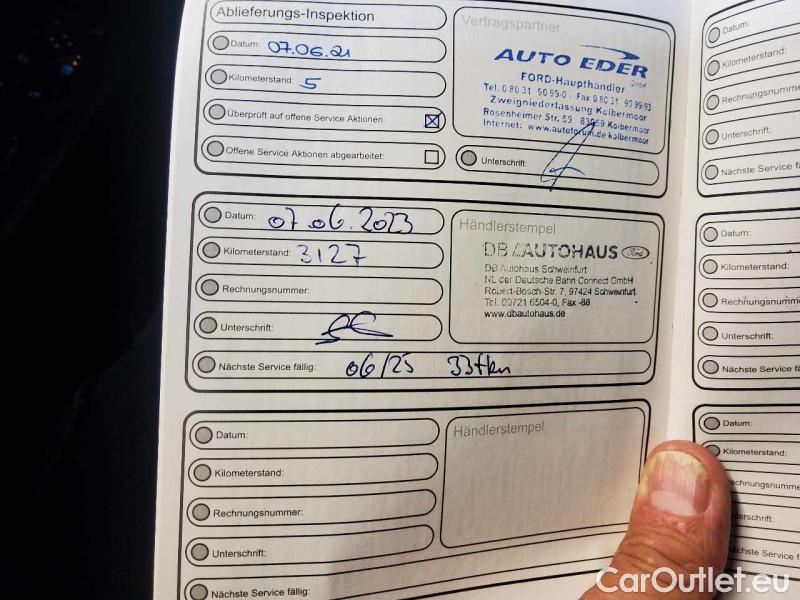 Ablieferungs-Inspektion
Datum: 07.06.21
Kilometerstand: 5
Überprüft auf offene Service Aktionen:
Offene Service Aktionen abgearbeitet:
Vertragspartner
AUTO EDER
FORD-Haupthändler
Tel. 0 80 31 90 99-0 - Fax 0 80 31 90 99-93
Zweigniederlassung Kolbermoor
Rosenheimer Str. 59 83059 Kolbermoor
Internet: www.autoforum.de kolbermoor
Unterschrift:
Datum: 07.06.2023
Kilometerstand: 3127
Rechnungsnummer:
Unterschrift:
Nächste Service fällig: 06/25 33tkm
Händlerstempel
DB AUTOHAUS Ford
DB Autohaus Schweinfurt
NL der Deutsche Bahn Connect GmbH
Robert-Bosch-Str. 7, 97424 Schweinfurt
Tel. 09721 6504-0, Fax -88
www.dbautohaus.de
Datum:
Kilometerstand:
Rechnungsnummer:
Unterschrift:
Nächste Service fällig:
Händlerstempel
Datum:
Kilometerstand:
Rechnungsnumme
Unterschrift:
Nächste Service fäl
Datum:
Kilometerstand:
Rechnungsnumme
Unterschrift:
Nächste Service fä
Datum:
Kilometerstand:
echnungsnumme
erschrift:
chste Service f
CarOutlet.eu